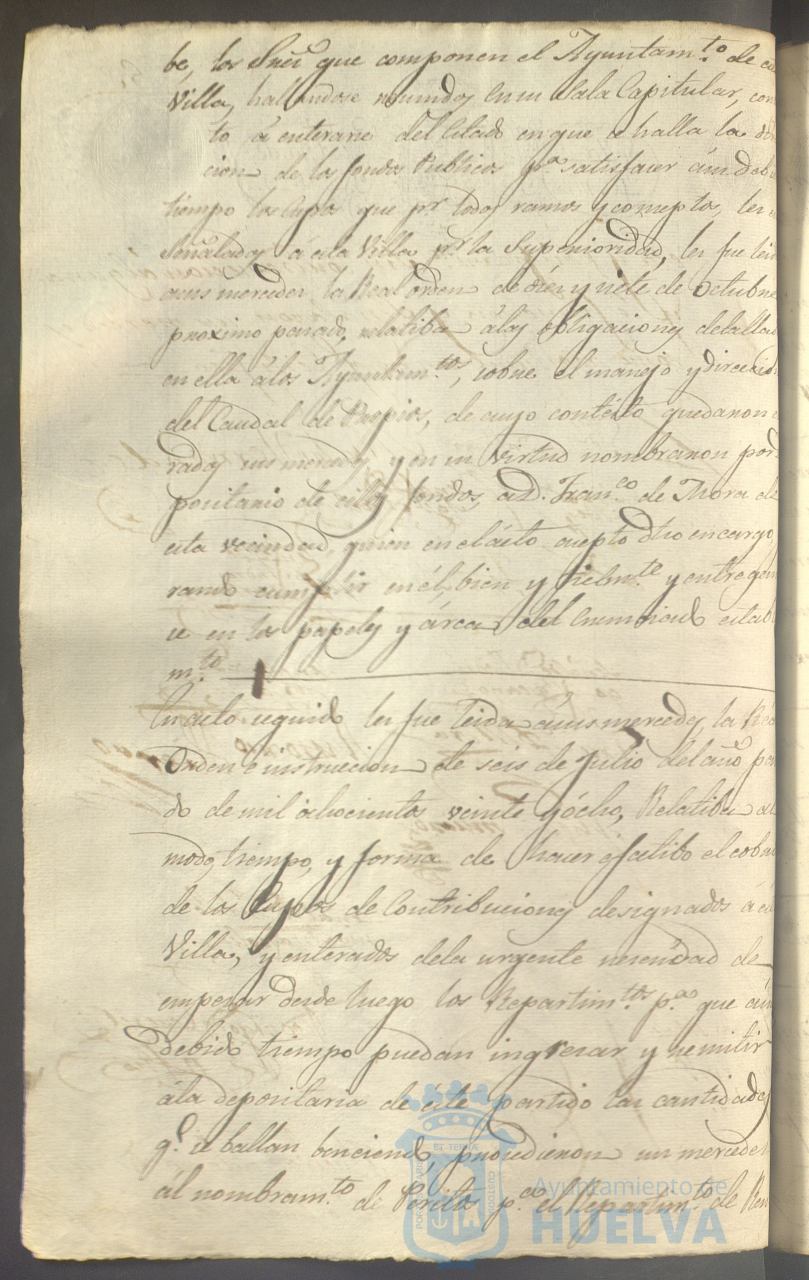 be, los Sres que componen el Ayuntam.to de es
Villa, hallandose reunidos en su Sala Capitular, con
to á enterarse del Estado en que se halla la
cion de los fondos Publicos p.a satisfacer á su deb
tiempo los Cupos que p.r todos ramos y conceptos, le
Señalados á esta Villa p.r la Superioridad, les fue leid
á sus mercedes la Real orden de diez y siete de Octubre
proximo pasado, relatiba á las obligaciones detallad
en ella á los Ayuntam.tos, sobre el manejo y direccio
del Caudal de Propios, de cuyo contesto quedaron
rados sus mercedes y en su virtud nombraron por
positario de ellos fondos, a D. Fran.co de Mora de
esta vecindad, quien en el ácto acepto dho encargo
rando cumplir en él, bien y fielm.te y entregan
se en los papeles y árcas del enunciado estab
m.to
En acto seguido les fue leida á sus mercedes, la Rea
Orden é instruccion de seis de Julio del año pa
do de mil ochocientos veinte y ócho, Relatiba al
modo, tiempo, y forma de hacer éfectibo el cobr
de los Cupos de Contribuciones designados á es
Villa, y enterados de la urgente necesidad de
empesar desde luego los Repartim.tos p.a que á su
debido tiempo puedan ingresar y remitir
á la depositaria de éste partido las cantidades
q.e se hallan benciendo, procedieron sus mercedes
al nombram.to de Peritos p.a el Repartim.to de
Ayuntamiento de
HUELVA